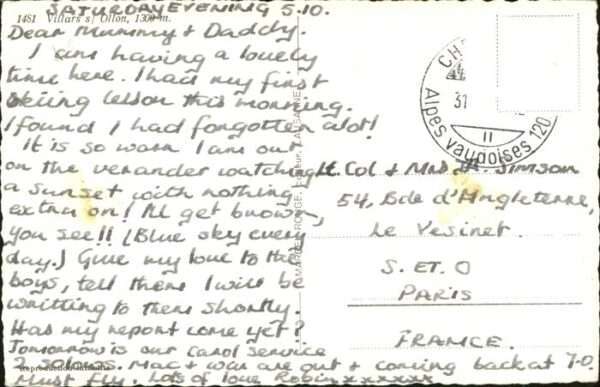 SATURDAY EVENING 5.10.
1481 Villars s/Ollon, 1300 m.
Dear Mummy & Daddy.
I am having a lovely
time here. I had my first
skiing lesson this morning.
I found I had forgotten alot!
It is so warm I am out
on the verander watching
a sunset with nothing
extra on! I'll get brown,
you see!! (Blue sky every
day.) Give my love to the
boys, tell them I will be
writting to them shortly.
Has my report come yet?
Tomorrow is our carol service
2 solows. Mac & war are out & coming back at 7.0
Must fly. Lots of love Robin xxxxxxx
CH
31
Alpes vaudoises 120
II
Lt. Col & Mrs SIMSON
54, Bde d'Angleterre,
Le Vesinet.
S. ET. O
PARIS
FRANCE.